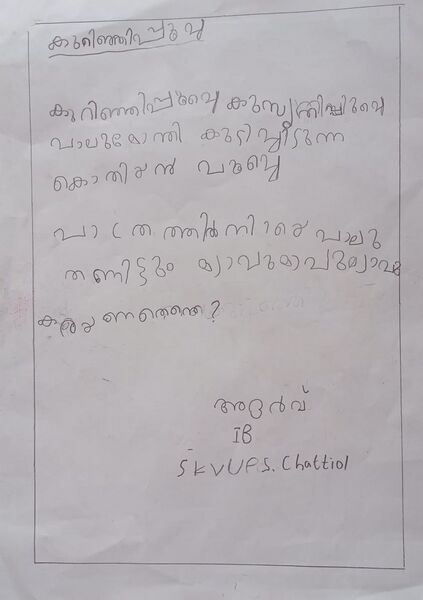 കുറിഞ്ഞിപ്പൂച്ച
കുറിഞ്ഞിപ്പൂച്ചെ കുസൃതിപ്പൂച്ചെ
പാലുമോന്തി കുടിച്ചീടുന്ന
കൊതിച്ചൻ പൂച്ചെ
പാത്രത്തിൽ നിറച്ചെ പാലു
തന്നിട്ടും മ്യാവൂമ്യാവൂമ്യാവൂ
ണതെന്തെ?
അദർവ്
IB
SKVUPS. Chattiol